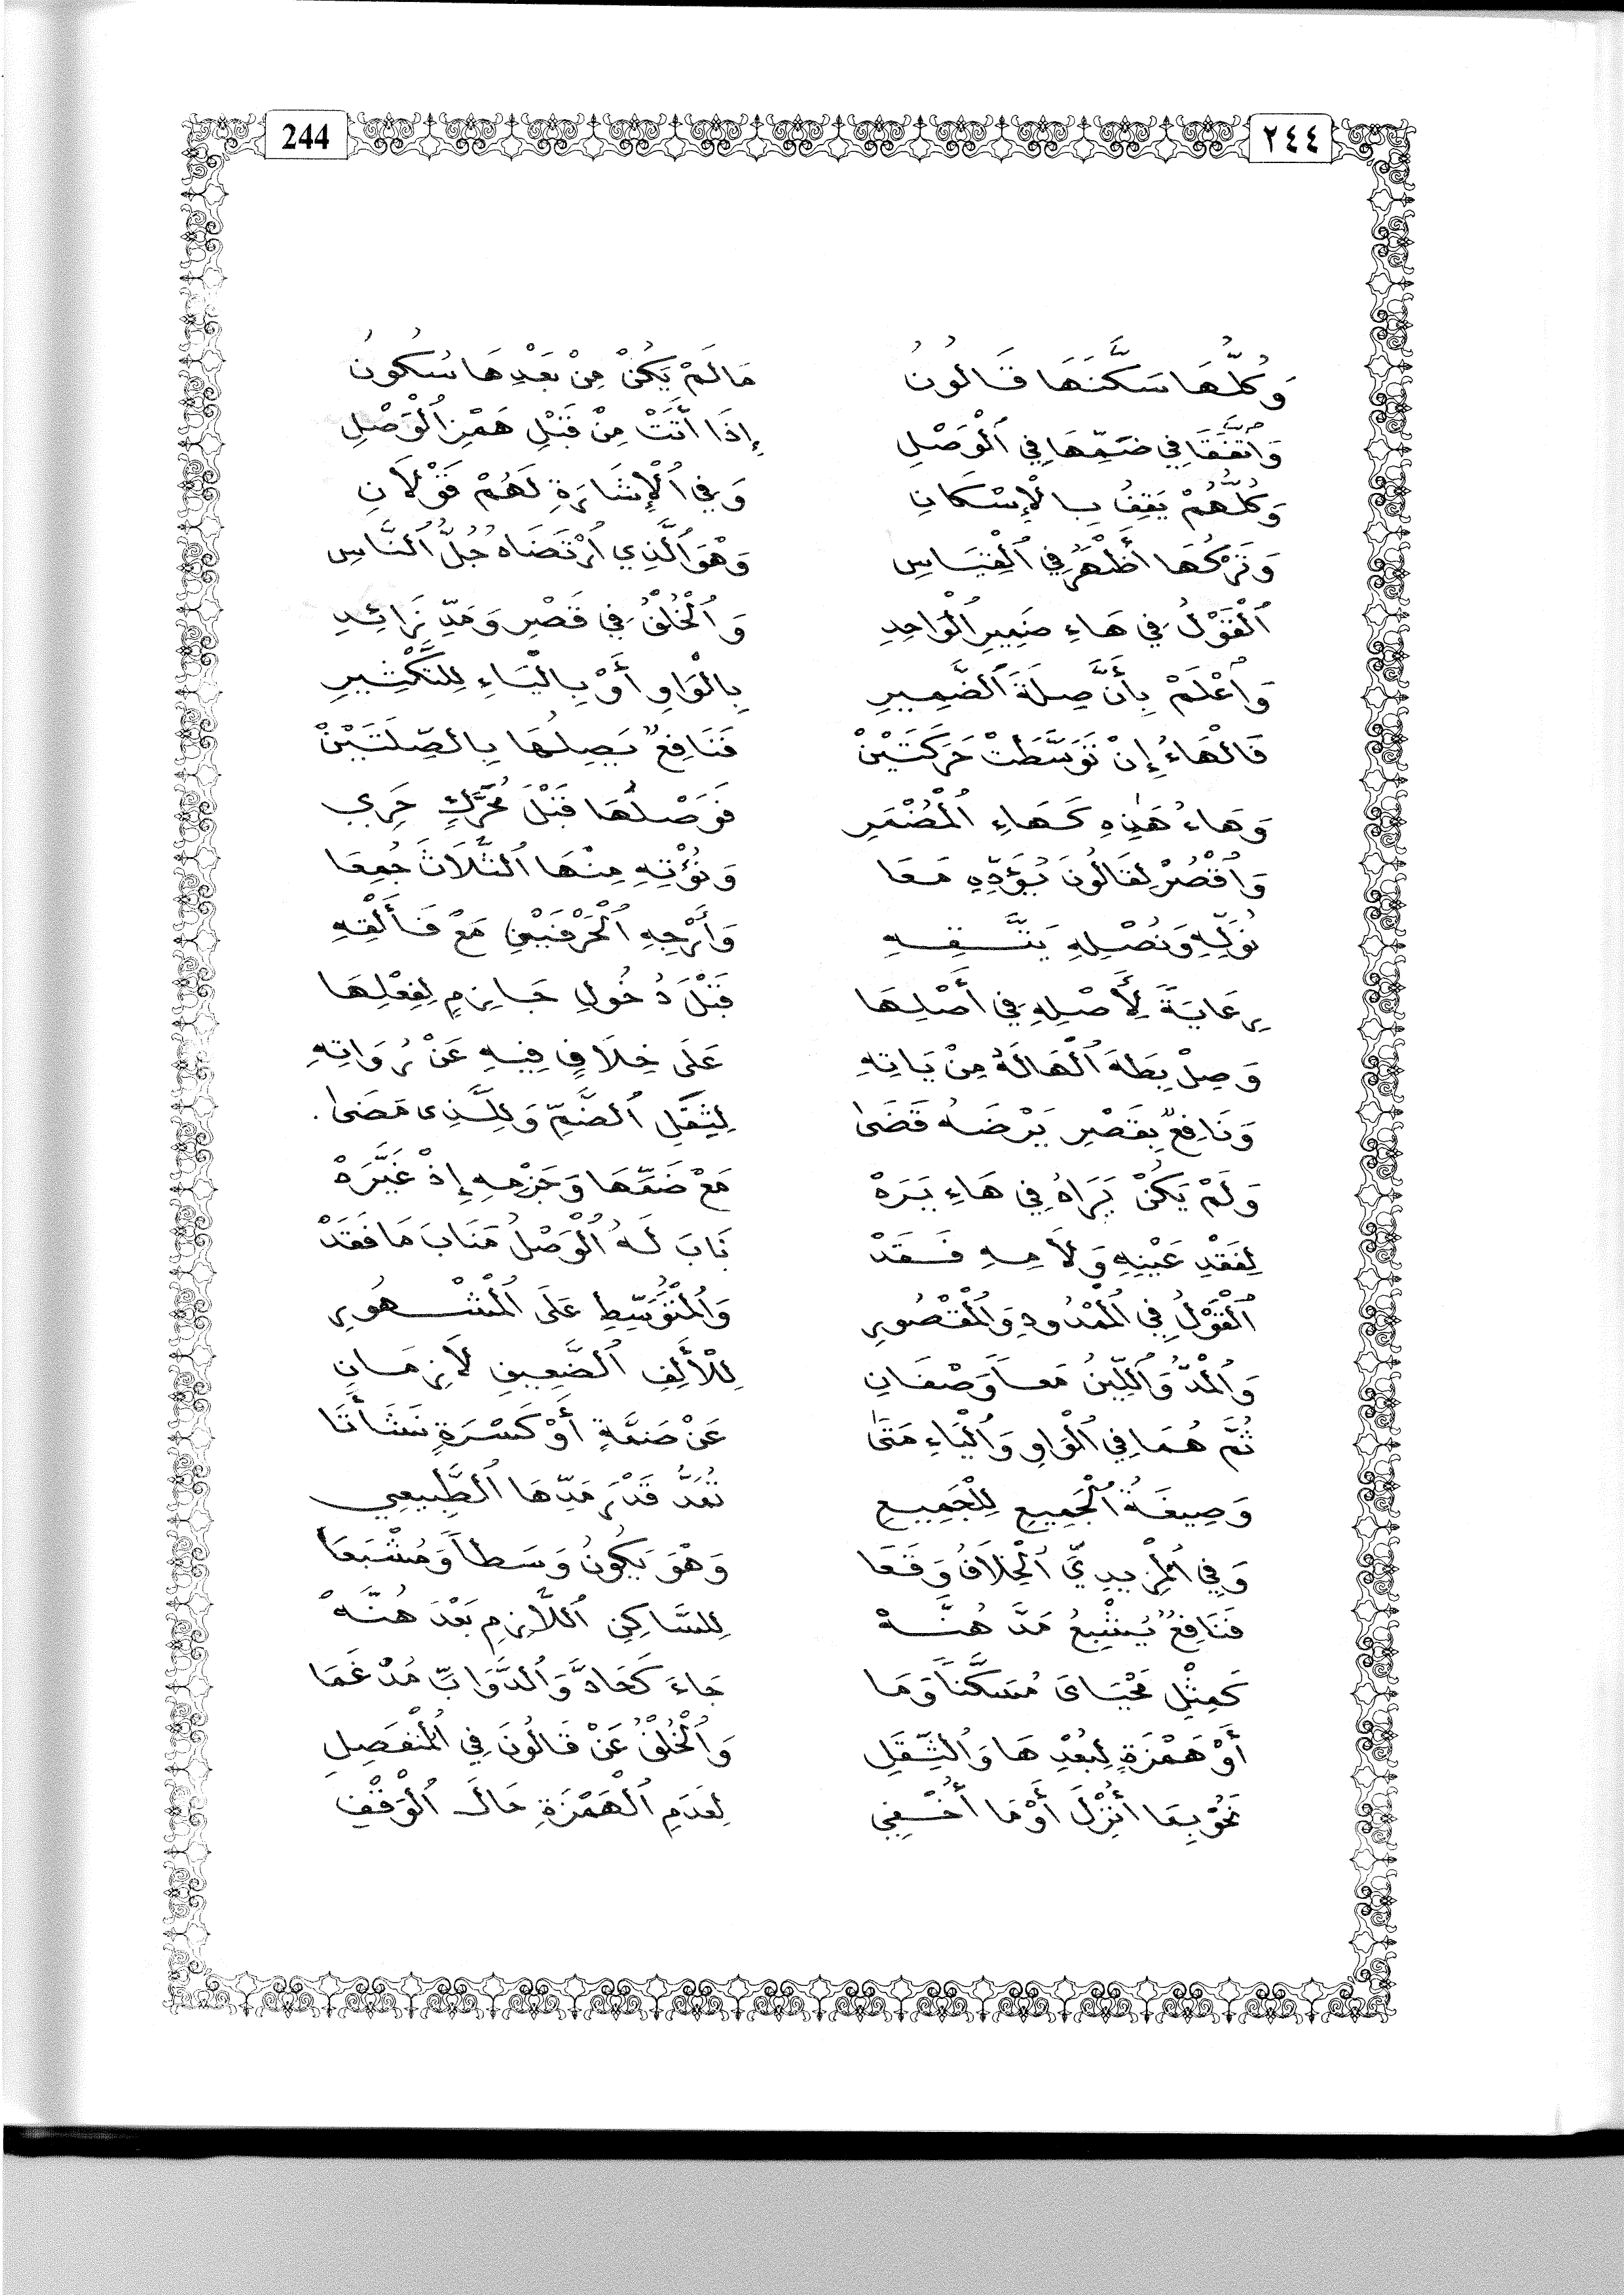 244 ٢٤٤
وَكُلَّهَا سَكَّنَهَا قَالُونُ مَا لَمْ يَكُنْ مِنْ بَعْدِهَا سُكُونُ
وَاتَّفَقَا فِي ضَمِّهَا فِي الْوَصْلِ إِذَا أَتَتْ مِنْ قَبْلِ هَمْزِ الْوَصْلِ
وَكُلُّهُمْ يَقِفُ بِالْإِسْكَانِ وَفِي الْإِشَارَةِ لَهُمْ قَوْلَانِ
وَتَرْكُهَا أَظْهَرُ فِي الْقِيَاسِ وَهْوَ الَّذِي ارْتَضَاهُ جُلُّ النَّاسِ
الْقَوْلُ فِي هَاءِ ضَمِيرِ الْوَاحِدِ وَالْخُلْفُ فِي قَصْرٍ وَمَدٍّ زَائِدِ
وَاعْلَمْ بِأَنَّ صِلَةَ الضَّمِيرِ بِالْوَاوِ أَوْ بِالْيَاءِ لِلتَّكْثِيرِ
فَالْهَاءُ إِنْ تَوَسَّطَتْ حَرَكَتَيْنْ فَنَافِعٌ يَصِلُهَا بِالصِّلَتَيْنْ
وَهَاءُ هَذِهِ كَهَاءِ الْمُضْمَرِ فَوَصْلُهَا قَبْلَ مُحَرَّكٍ حَرِي
وَاقْصُرْ لِقَالُونَ يُؤَدِّهِ مَعَا وَنُؤْتِهِ مِنْهَا الثَّلَاثَ جُمِعَا
نُوَلِّهِ وَنُصْلِهِ يَتَّقِهِ وَأَرْجِهِ الْحَرْفَيْنِ مَعْ فَأَلْقِهِ
رِعَايَةً لِأَصْلِهِ فِي أَصْلِهَا قَبْلَ دُخُولِ جَازِمٍ لِفِعْلِهَا
وَصِلْ بِطَهَ الْهَا لَهُ مِنْ يَاتِهِ عَلَى خِلَافٍ فِيهِ عَنْ رُوَاتِهِ
وَنَافِعٌ بِقَصْرِ يَرْضَهُ قَضَى لِثِقَلِ الضَّمِّ وَلِلَّذِي مَضَى.
وَلَمْ يَكُنْ يَرَاهُ فِي هَاءِ يَرَهْ مَعْ ضَمِّهَا وَجَزْمِهِ إِذْ غَيَّرَهْ
لِفَقْدِ عَيْنِهِ وَلَامِهِ فَقَدْ نَابَ لَهُ الْوَصْلُ مَنَابَ مَا فَقَدْ
الْقَوْلُ فِي الْمَمْدُودِ وَالْمَقْصُورِ وَالْمُتَوَسِّطِ عَلَى الْمَشْهُورِ
وَالْمَدُّ وَاللِّينُ مَعاً وَصْفَانِ لِلْأَلِفِ الضَّعِيفِ لَازِمَانِ
ثُمَّ هُمَا فِي الْوَاوِ وَالْيَاءِ مَتَى عَنْ ضَمَّةٍ أَوْ كَسْرَةٍ نَشَأَتَا
وَصِيغَةُ الْجَمِيعِ لِلْجَمِيعِ تُمَدُّ قَدْرَ مَدِّهَا الطَّبِيعِي
وَفِي الْمَزِيدِيِّ الْخِلَافُ وَقَعَا وَهْوَ يَكُونُ وَسَطاً وَمُشْبَعَا
فَنَافِعٌ يُشْبِعُ مَدَّهُنَّهْ لِلسَّاكِنِ اللَّازِمِ بَعْدَهُنَّهْ
كَمِثْلِ مَحْيَايَ مُسَكَّناً وَمَا جَاءَ كَحَادَّ وَالدَّوَابِّ مُدْغَمَا
أَوْ هَمْزَةٍ لِبُعْدِهَا وَالثِّقَلِ وَالْخُلْفُ عَنْ قَالُونَ فِي الْمُنْفَصِلِ
نَحْوُ بِمَا أُنْزِلَ أَوْ مَا أُخْفِي لِعَدَمِ الْهَمْزَةِ حَالَ الْوَقْفِ